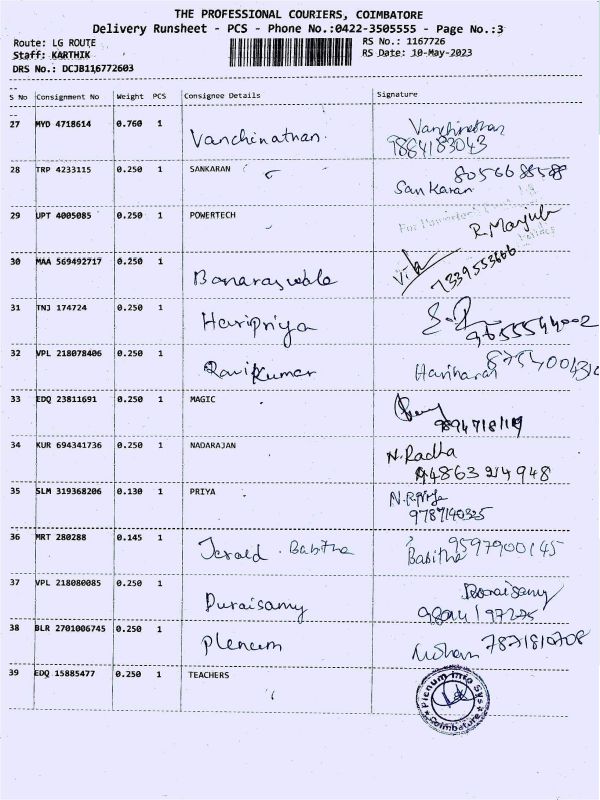 THE PROFESSIONAL COURIERS, COIMBATORE
Delivery Runsheet - PCS - Phone No.:0422-3505555 - Page No.:3
Route: LG ROUTE RS No.: 1167726
Staff: KARTHIK RS Date: 10-May-2023
DRS No.: DCJB116772603
S No Consignment No Weight PCS Consignee Details Signature
27 MYD 4718614 0.760 1 Vanchinathan Vanchinathan
9884183043
28 TRP 4233115 0.250 1 SANKARAN
Sankaran
29 UPT 4005085 0.250 1 POWERTECH R. Manjula
30 MAA 569492717 0.250 1 Banaraswala
7339553666
31 TNJ 174724 0.250 1 Haripriya
9655544002
32 VPL 218078406 0.250 1 Ravikumar Hariharan
33 EDQ 23811691 0.250 1 MAGIC
34 KUR 694341736 0.250 1 NADARAJAN N. Radha
35 SLM 319368206 0.130 1 PRIYA
9787140325
36 MRT 280288 0.145 1 Jerald . Babitha Babitha 9597900145
37 VPL 218080085 0.250 1 Duraisamy Dooraisamy
38 BLR 2701006745 0.250 1 Plenum Mohan 7871810708
39 EDQ 15885477 0.250 1 TEACHERS Plenum Info Sys
Coimbatore